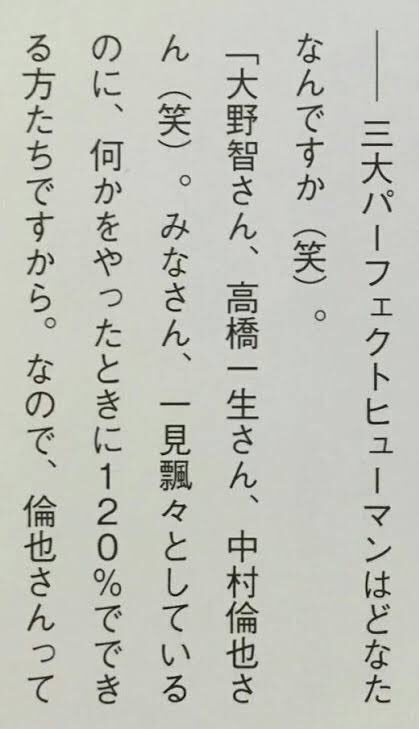 ── 三大パーフェクトヒューマンはどなた
なんですか（笑）。
「大野智さん、高橋一生さん、中村倫也さ
ん（笑）。みなさん、一見飄々としている
のに、何かをやったときに120%ででき
る方たちですから。なので、倫也さんって